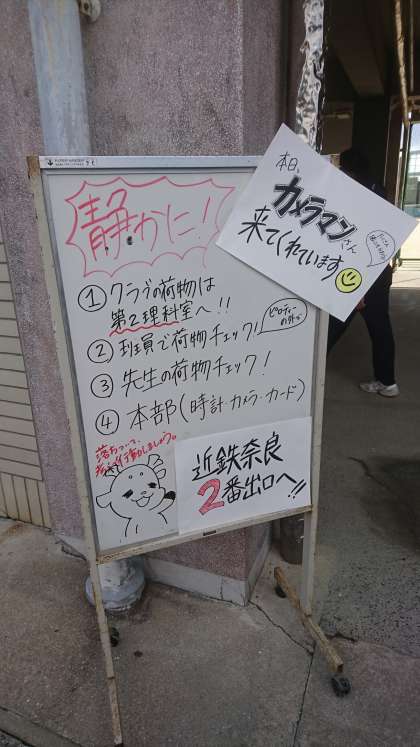 静かに!
本日
カメラマンさん
来てくれています
① クラブの荷物は
第2理科室へ!!
② 班員で荷物チェック!
ピロティーの外で
③ 先生の荷物チェック!
④ 本部(時計・カメラ・カード)
落ちついて、
考えて行動しましょう。
近鉄奈良
2番出口へ!!